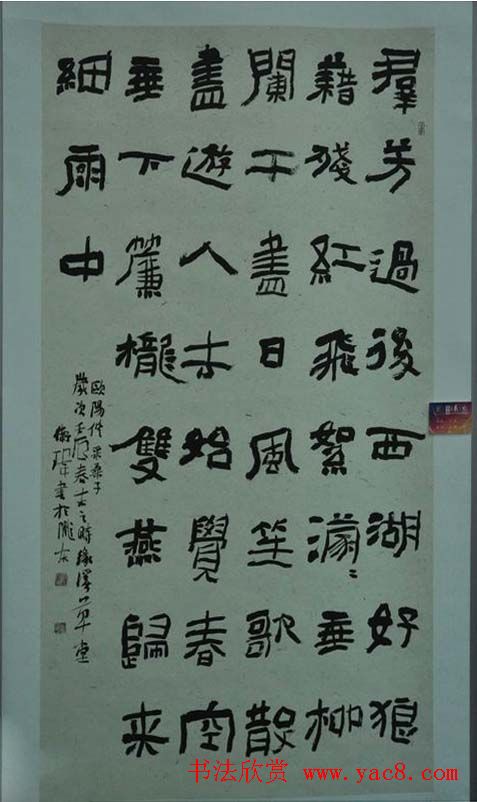 羣芳過後西湖好狼
藉殘紅飛絮濛〻垂柳
闌干盡日風笙歌散
盡遊人去始覺春空
垂下簾櫳雙燕歸來
細雨中
歐陽修采桑子
歲次壬辰春之時草堂
書於隴右
书法欣赏 www.yac8.com